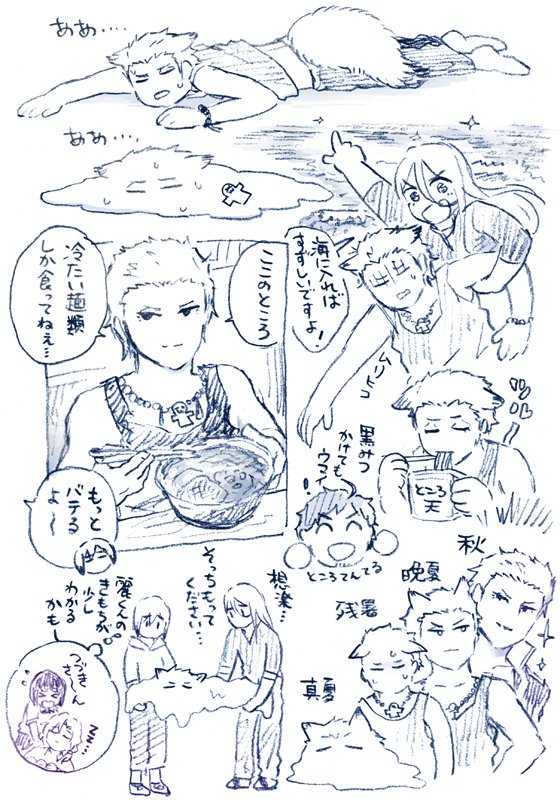 ああ……
ああ……
海に入れば
すずしいですよ！
ムリヒコ
ここのところ
冷たい麺類
しか食ってねぇ…
もっと
バテる
よ〜
黒みつ
かけても
ウマイ！
ところてんてる
ところ
天
想楽…
そっちもって
ください…
麗くんの
きもちが
少し
わかる
かも
つづき
さーん
zzz…
秋
晩夏
残暑
真夏